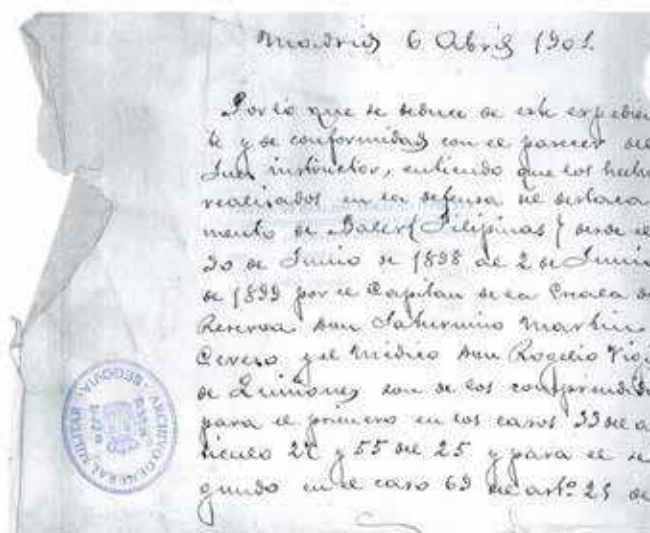 Madrid 6 Abril 1901.
Por lo que se deduce de este expedien
te y de conformidad con el parecer del
Juez instructor, entiendo que los hechos
realizados en la defensa del destaca
mento de Baler (Filipinas) desde el
30 de Junio de 1898 al 2 de Junio
de 1899 por el Capitan de la Escala de
Reserva Don Saturnino Martin
Cerezo y el Médico Don Rogelio Vigil
de Quiñones son de los comprendidos
para el primero en los casos 33 del a
ticulo 27 y 55 del 25 y para el se
gundo en el caso 63 del artº 25 de
ARCHIVO GENERAL MILITAR · SEGOVIA ·